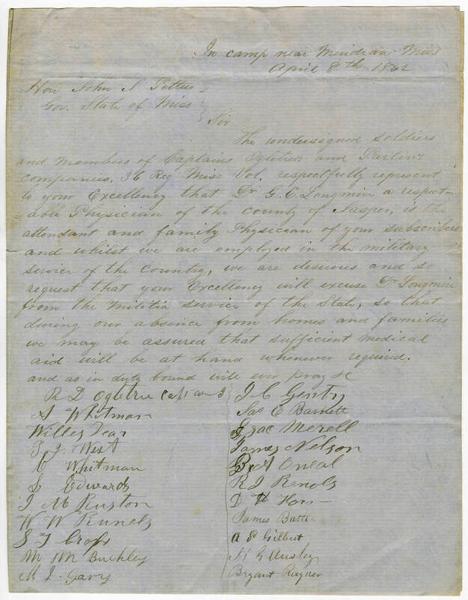 In camp near Meridian Miss
April 8th 1862
Hon John J Pettus
Gov. State of Miss
Sir
The undersigned soldiers
and members of Captains Ogletree and
companies, 36 Reg Miss Vol. respectfully represent
to your Excellency that Dr G. C. Longmire a respect-
able Physician of the county of Jasper, is the
attendant and family Physician of your subscribers
and whilst we are employed in the military
service of the Country, we are desirous and so
request that your Excellency will excuse Dr Longmire
from the Militia service of the State, so that
during our absence from homes and families
we may be assured that sufficient medical
aid will be at hand whenever required.
and as in duty bound will ever pray &c
R D Ogletree
Whitman
Willey
West
Whitman
Edwards
J M
W W Runnels
S J
M M Buckley
M J Gary
J C Gentry
Jas C Barnett
Isac Merell
James Nelson
Oneal
R J
D
James
A S Gilbert

Bryant